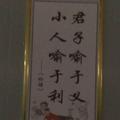 君子喻于义
小人喻于利